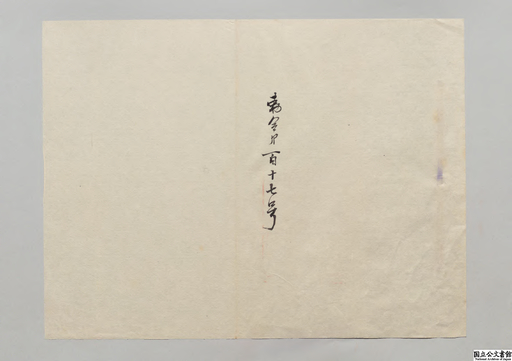 勅令第百十七号
国立公文書館
National Archives of Japan